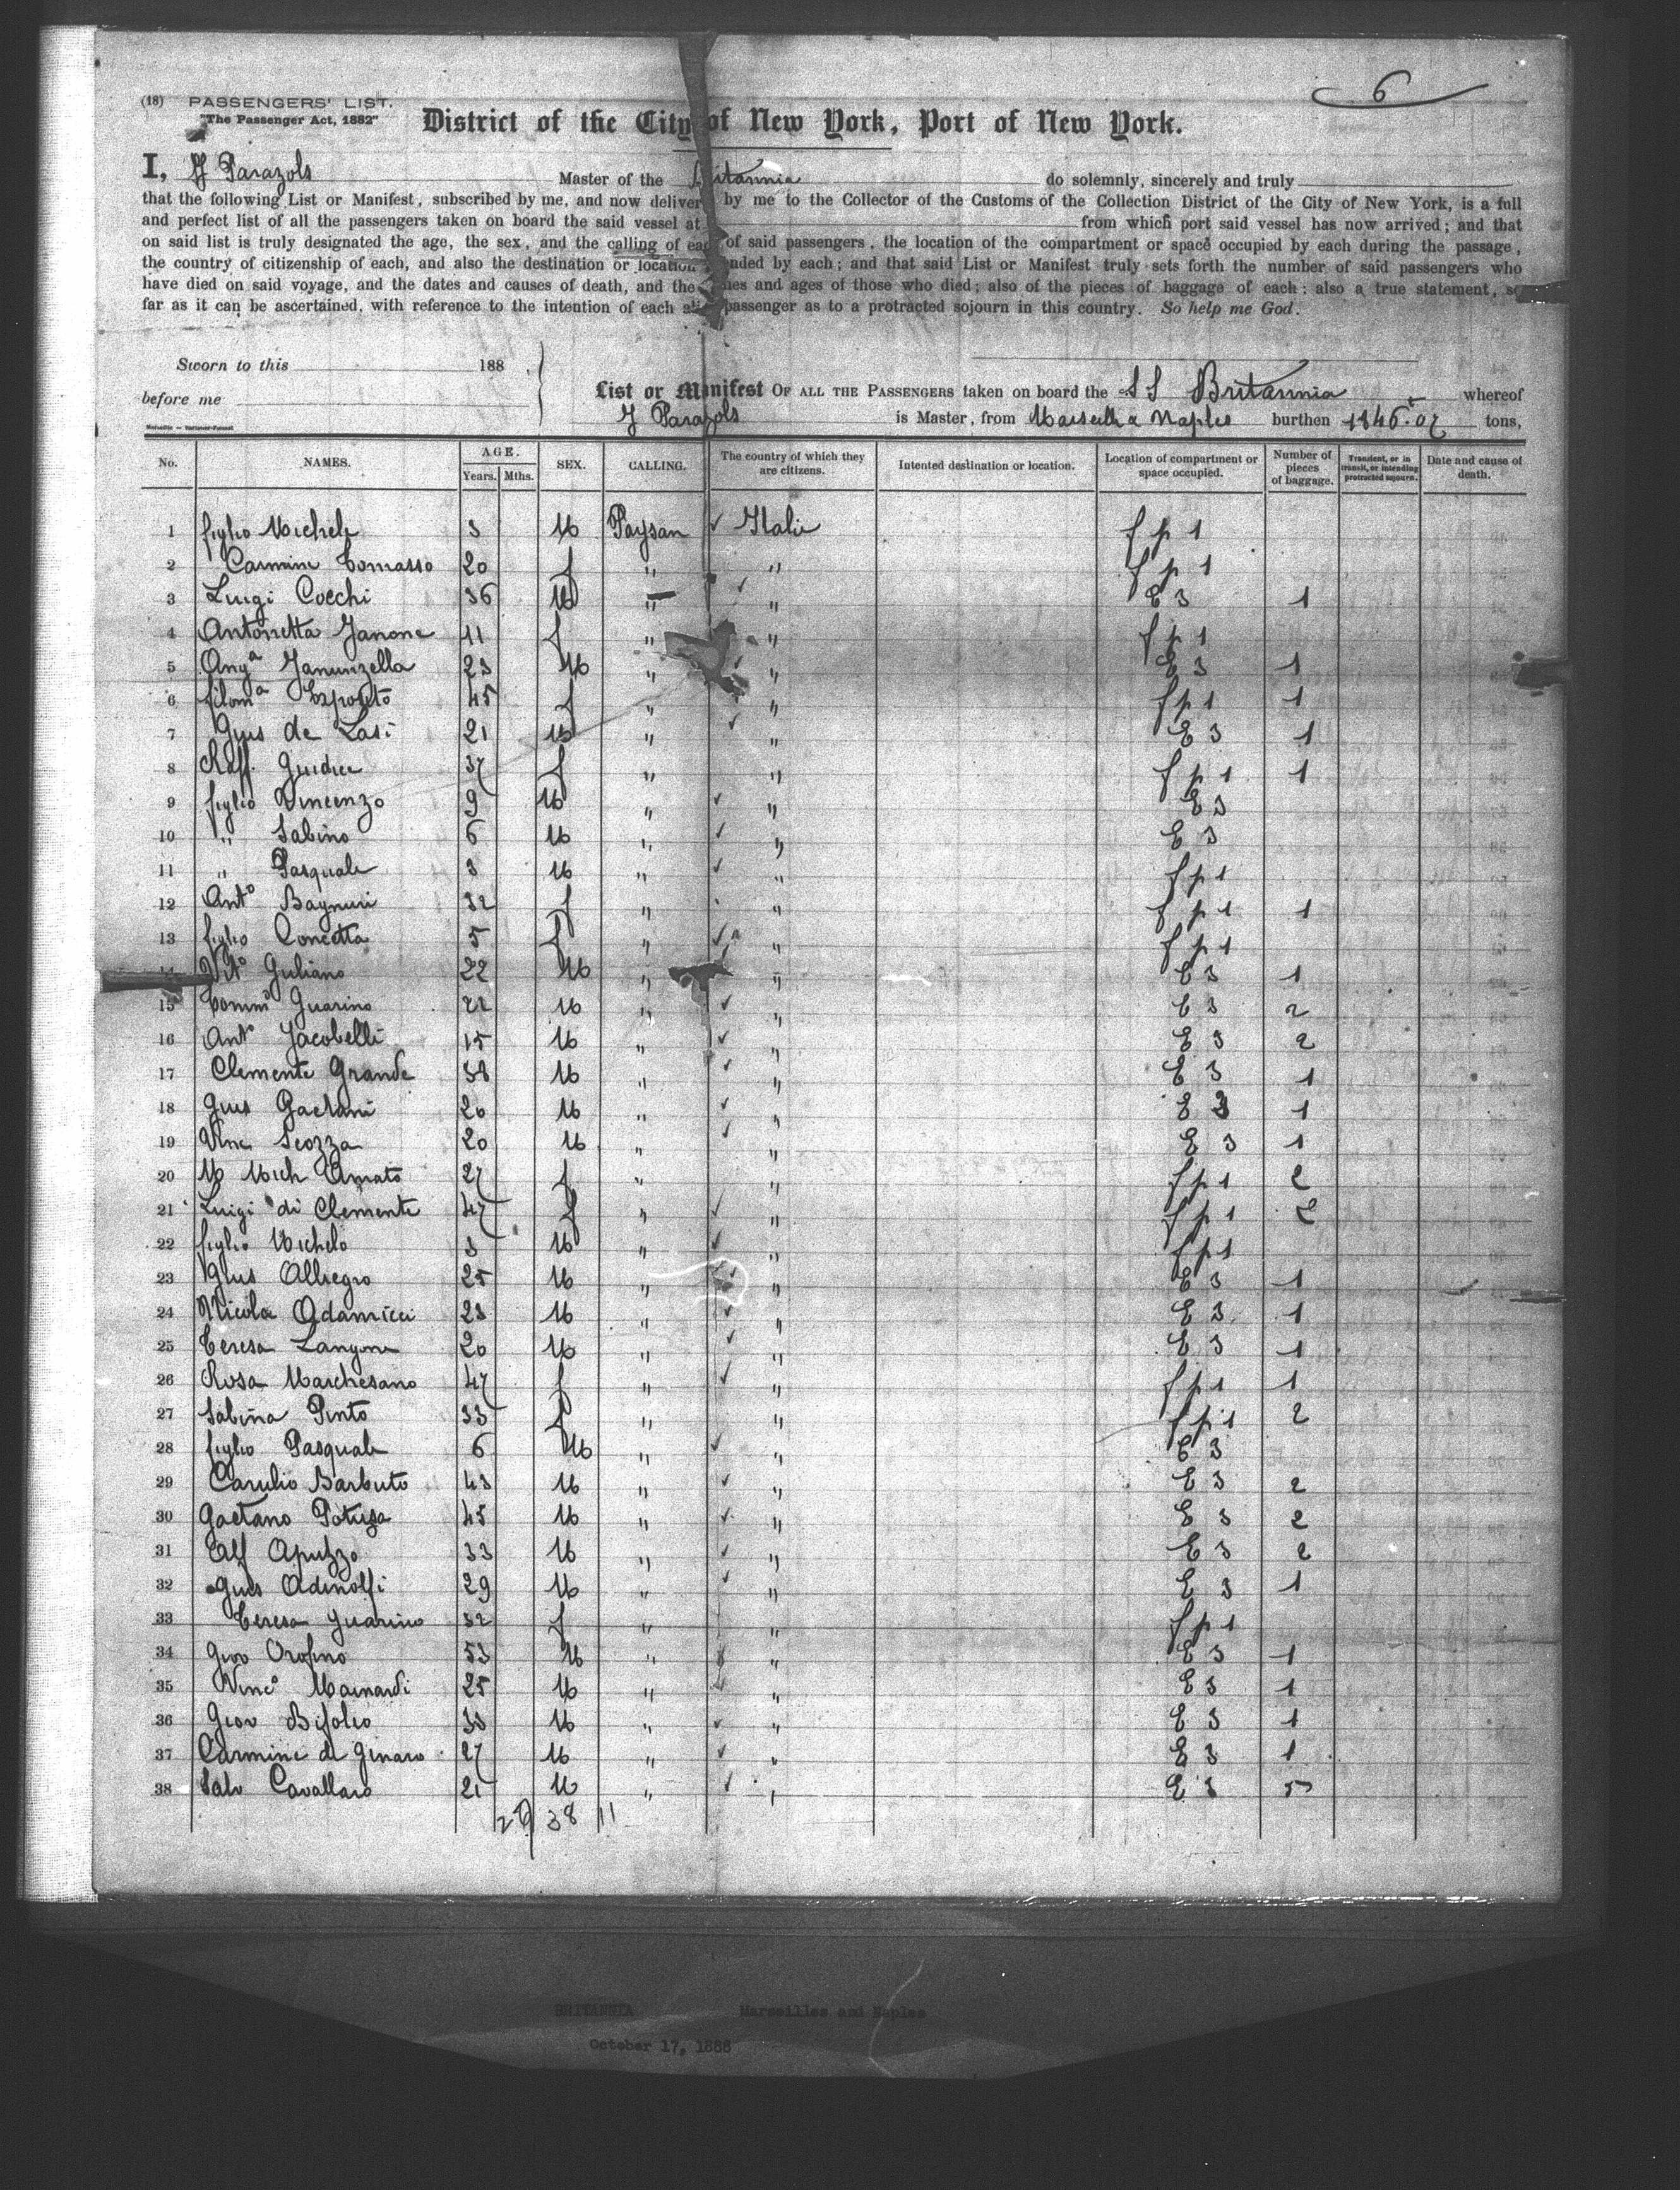 6
(18) PASSENGERS' LIST.
"The Passenger Act, 1882"
District of the City of New York, Port of New York.
I, J Parazols Master of the Britannia do solemnly, sincerely and truly
that the following List or Manifest, subscribed by me, and now deliver by me to the Collector of the Customs of the Collection District of the City of New York, is a full
and perfect list of all the passengers taken on board the said vessel at from which port said vessel has now arrived; and that
on said list is truly designated the age, the sex, and the calling of each of said passengers, the location of the compartment or space occupied by each during the passage,
the country of citizenship of each, and also the destination or location nded by each; and that said List or Manifest truly sets forth the number of said passengers who
have died on said voyage, and the dates and causes of death, and the mes and ages of those who died; also of the pieces of baggage of each: also a true statement, so
far as it can be ascertained, with reference to the intention of each passenger as to a protracted sojourn in this country. So help me God.
Sworn to this 188 .
before me
List or Manifest OF ALL THE PASSENGERS taken on board the SS Britannia whereof
J Parazols is Master, from Marseille & Naples burthen 1846.07 tons,
No. NAMES. AGE. Years. Mths. SEX. CALLING. The country of which they are citizens. Intented destination or location. Location of compartment or space occupied. Number of pieces of baggage. Transient, or in transit, or intending protracted sojourn. Date and cause of death.
1 figlio Michele 3 M Paysan Italie f p 1
2 Carmine Tomasso 20 f " " f p 1
3 Luigi Cocchi 36 M " " E 3 1
4 Antonetta Janone 11 f " " f p 1
5 Ang^a Janunzella 23 M " " E 3 1
6 filom^a Esposito 45 f " " f p 1 1
7 Gius de Lasi 21 M " " E 3 1
8 Raff. Guidice 37 f " " f p 1 1
9 figlio Vincenzo 9 M " " E 3
10 " Sabino 6 M " " E 3
11 " Pasquale 3 M " " f p 1
12 Ant^o Bagnuri 32 f " " f p 1 1
13 figlio Concetta 5 f " " f p 1
14 Vit^o Guliano 22 M " " E 3 1
15 Tomm^o Guarino 22 M " " E 3 2
16 Ant^o Jacobelli 15 M " " E 3 2
17 Clemente Grande 38 M " " E 3 1
18 Gius Gaetani 20 M " " E 3 1
19 Vinc Scozza 20 M " " E 3 1
20 M Mich Amato 27 f " " f p 1 2
21 Luigi di Clemente 47 f " " f p 1 2
22 figlio Michele 3 M " " f p 1
23 Gius Allegro 25 M " " E 3 1
24 Nicola Adamicci 23 M " " E 3 1
25 Teresa Langone 20 M " " E 3 1
26 Rosa Marchesano 47 f " " f p 1 1
27 Sabina Pinto 33 f " " f p 1 2
28 figlio Pasquale 6 M " " E 3
29 Carulio Barbuto 43 M " " E 3 2
30 Gaetano Potusa 45 M " " E 3 2
31 Alf Apuzzo 33 M " " E 3 2
32 Gius Adinolfi 29 M " " E 3 1
33 Teresa Guarino 32 f " " f p 1
34 Giov Orofino 53 M " " E 3 1
35 Vinc^o Mainardi 25 M " " E 3 1
36 Giov Bifolco 38 M " " E 3 1
37 Carmine di Ginaro 27 M " " E 3 1
38 Salv Cavallaro 21 M " " E 3 5
38 11
BRITANNIA Marseilles and Naples
October 17, 1888